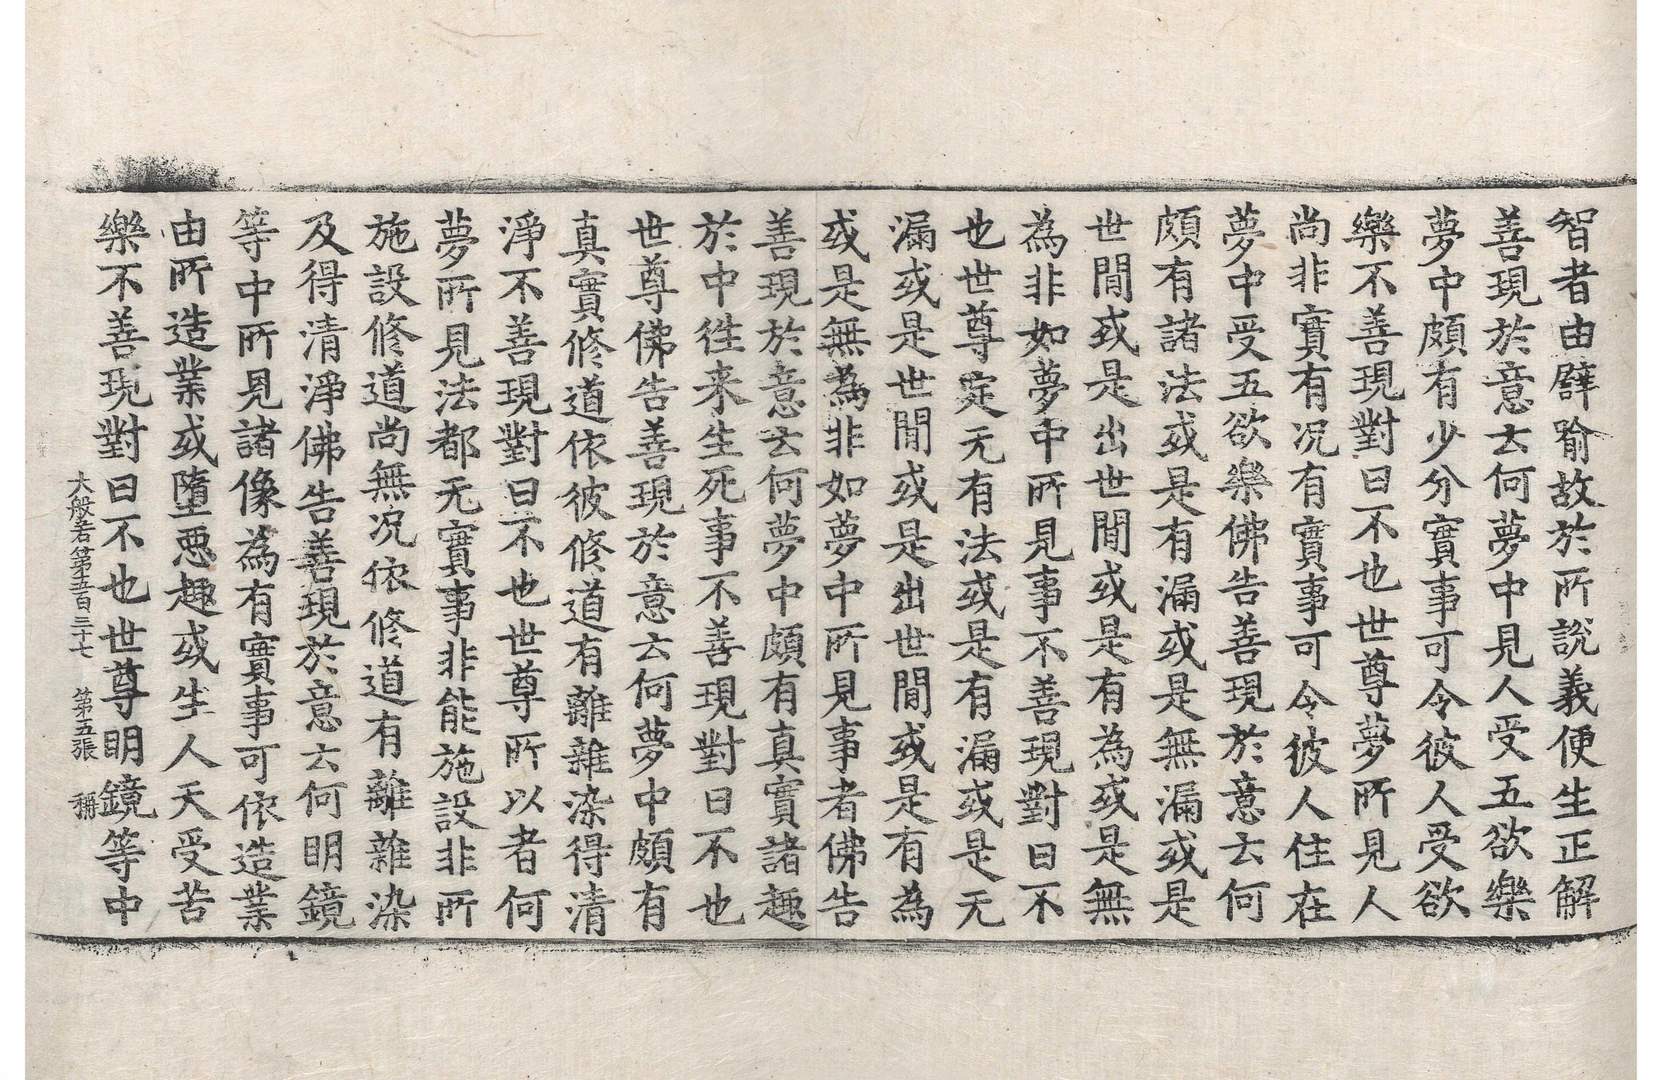 智者由譬喻故於所說義便生正解
善現於意云何夢中見人受五欲樂
夢中頗有少分實事可令彼人受欲
樂不善現對曰不也世尊夢所見人
尚非實有況有實事可令彼人住在
夢中受五欲樂佛告善現於意云何
頗有諸法或是有漏或是無漏或是
世間或是出世間或是有為或是無
為非如夢中所見事不善現對曰不
也世尊定无有法或是有漏或是无
漏或是世間或是出世間或是有為
或是無為非如夢中所見事者佛告
善現於意云何夢中頗有真實諸趣
於中往来生死事不善現對曰不也
世尊佛告善現於意云何夢中頗有
真實修道依彼修道有離雜染得清
淨不善現對曰不也世尊所以者何
夢所見法都无實事非能施設非所
施設修道尚無況依修道有離雜染
及得清淨佛告善現於意云何明鏡
等中所見諸像為有實事可依造業
由所造業或墮惡趣或生人天受苦
樂不善現對曰不也世尊明鏡等中
大般若第五百三十七 第五張 稱